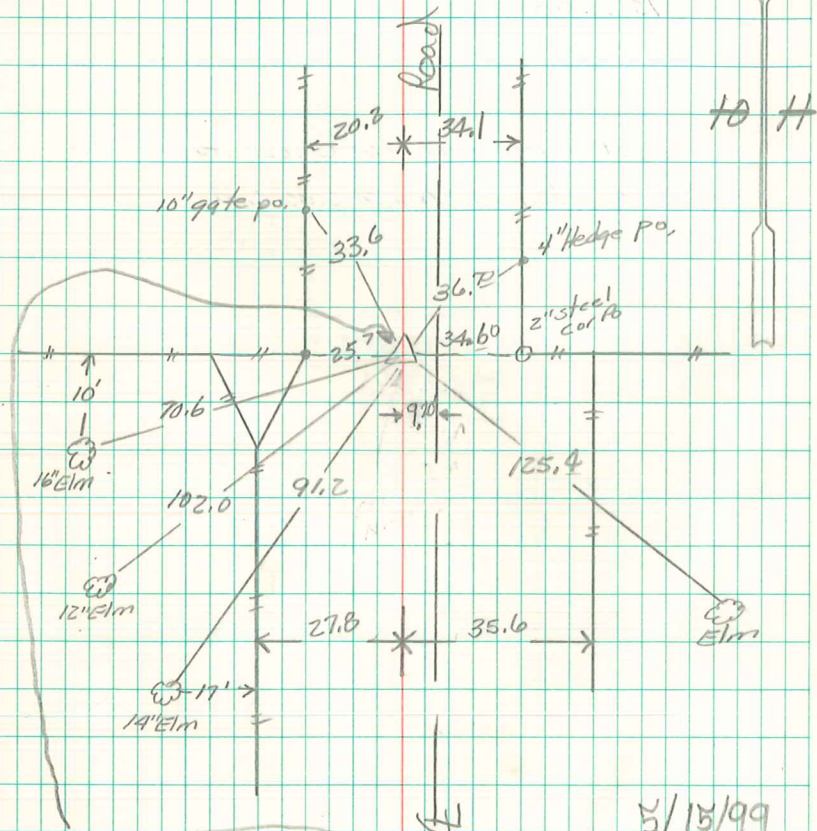 Road
10 11
20.2 34.1
10" gate po.
33.6
4" Hedge po,
36.70
2" steel
cor Po
25.7 34.60
10'
9.70
70.6
16" Elm
125.4
102.0 91.2
12" Elm
Elm
27.8 35.6
17'
14" Elm
5/15/99